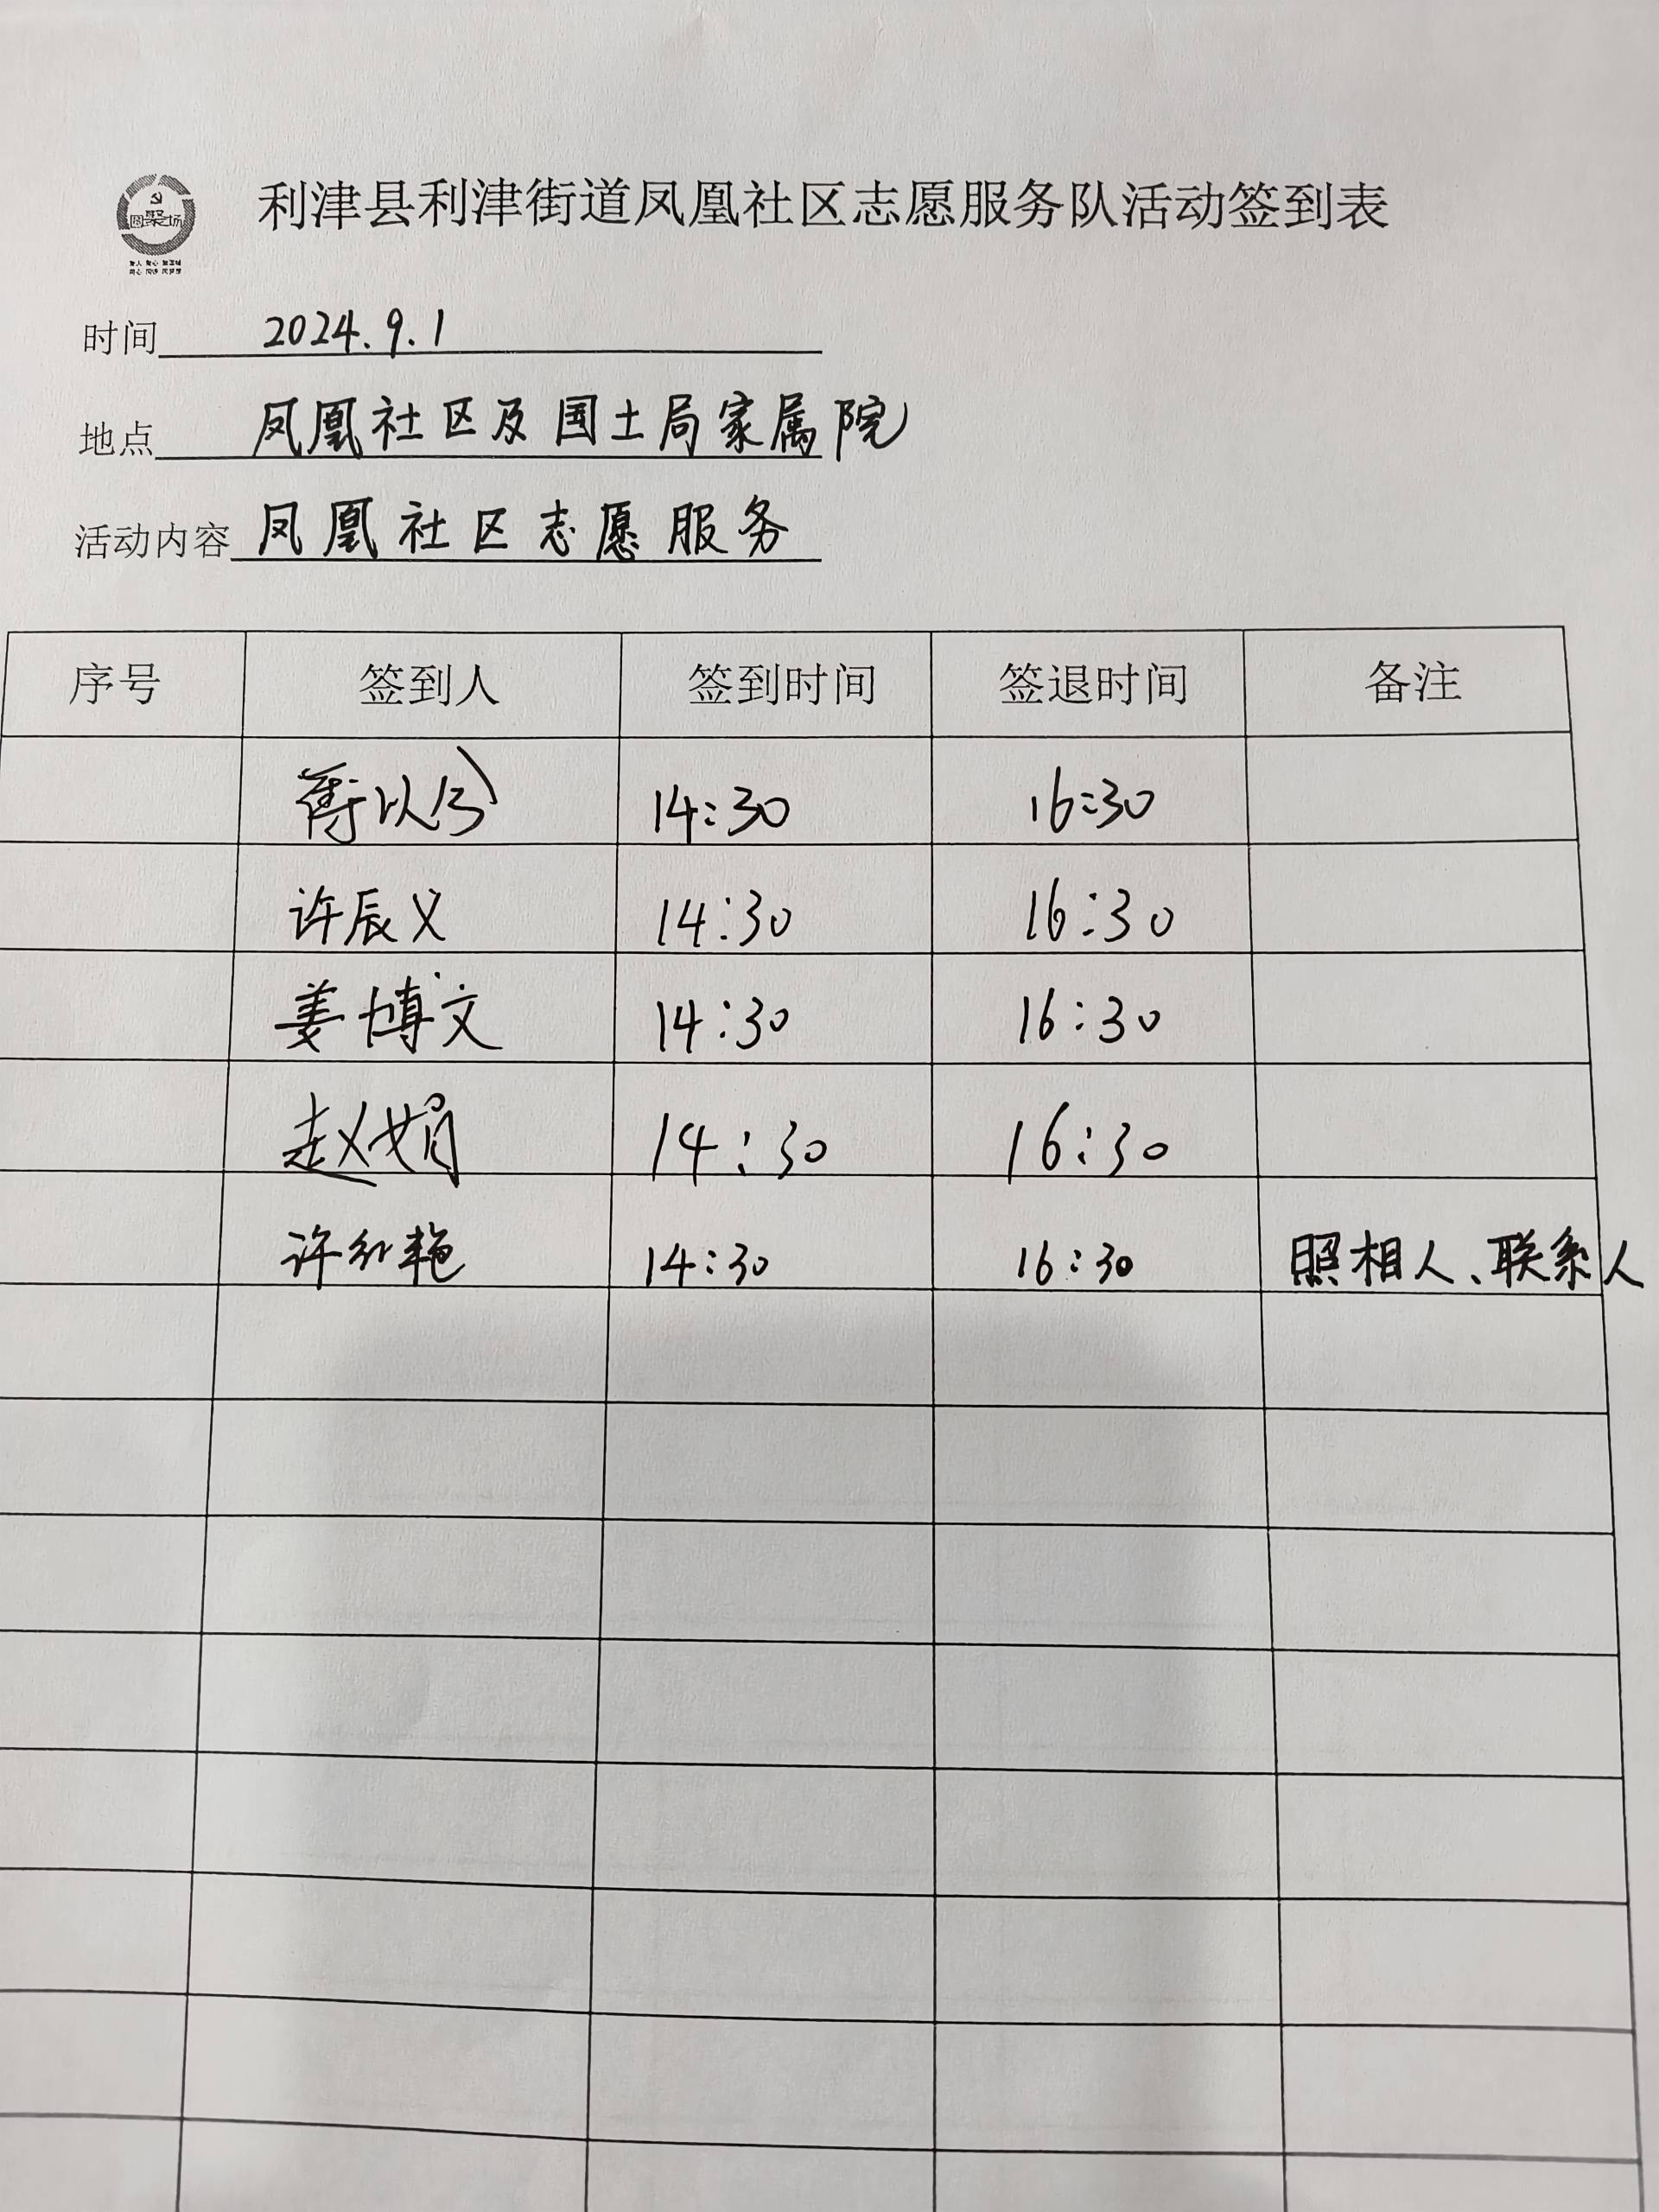 圆聚之场
利津县利津街道凤凰社区志愿服务队活动签到表
时间 2024.9.1
地点 凤凰社区及国土局家属院
活动内容 凤凰社区志愿服务
序号 签到人 签到时间 签退时间 备注
14:30 16:30
许辰义 14:30 16:30
姜博文 14:30 16:30
赵娟 14:30 16:30
许红艳 14:30 16:30 照相人、联系人